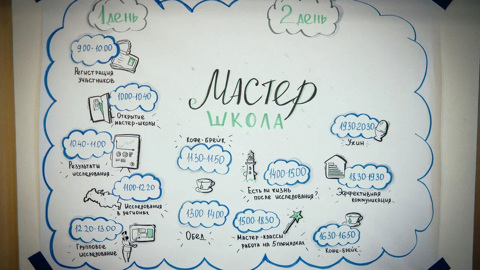 1 день
2 день
Мастер
школа
9.00-10.00
Регистрация
участников
10.00-10.40
Открытие
мастер-школы
10.40-11.00
Результаты
исследования
11.00-12.20
Исследования
в регионах
12.20-13.00
Групповое
исследование
Кофе-брейк
11.30-11.50
13.00-14.00
Обед
14.00-15.00
Есть ли жизнь
после исследования?
15.00-18.30
Мастер-классы
работа на 5 площадках
19.30-20.30
Ужин
18.30-19.30
Эффективная
коммуникация
16.30-16.50
Кофе-брейк